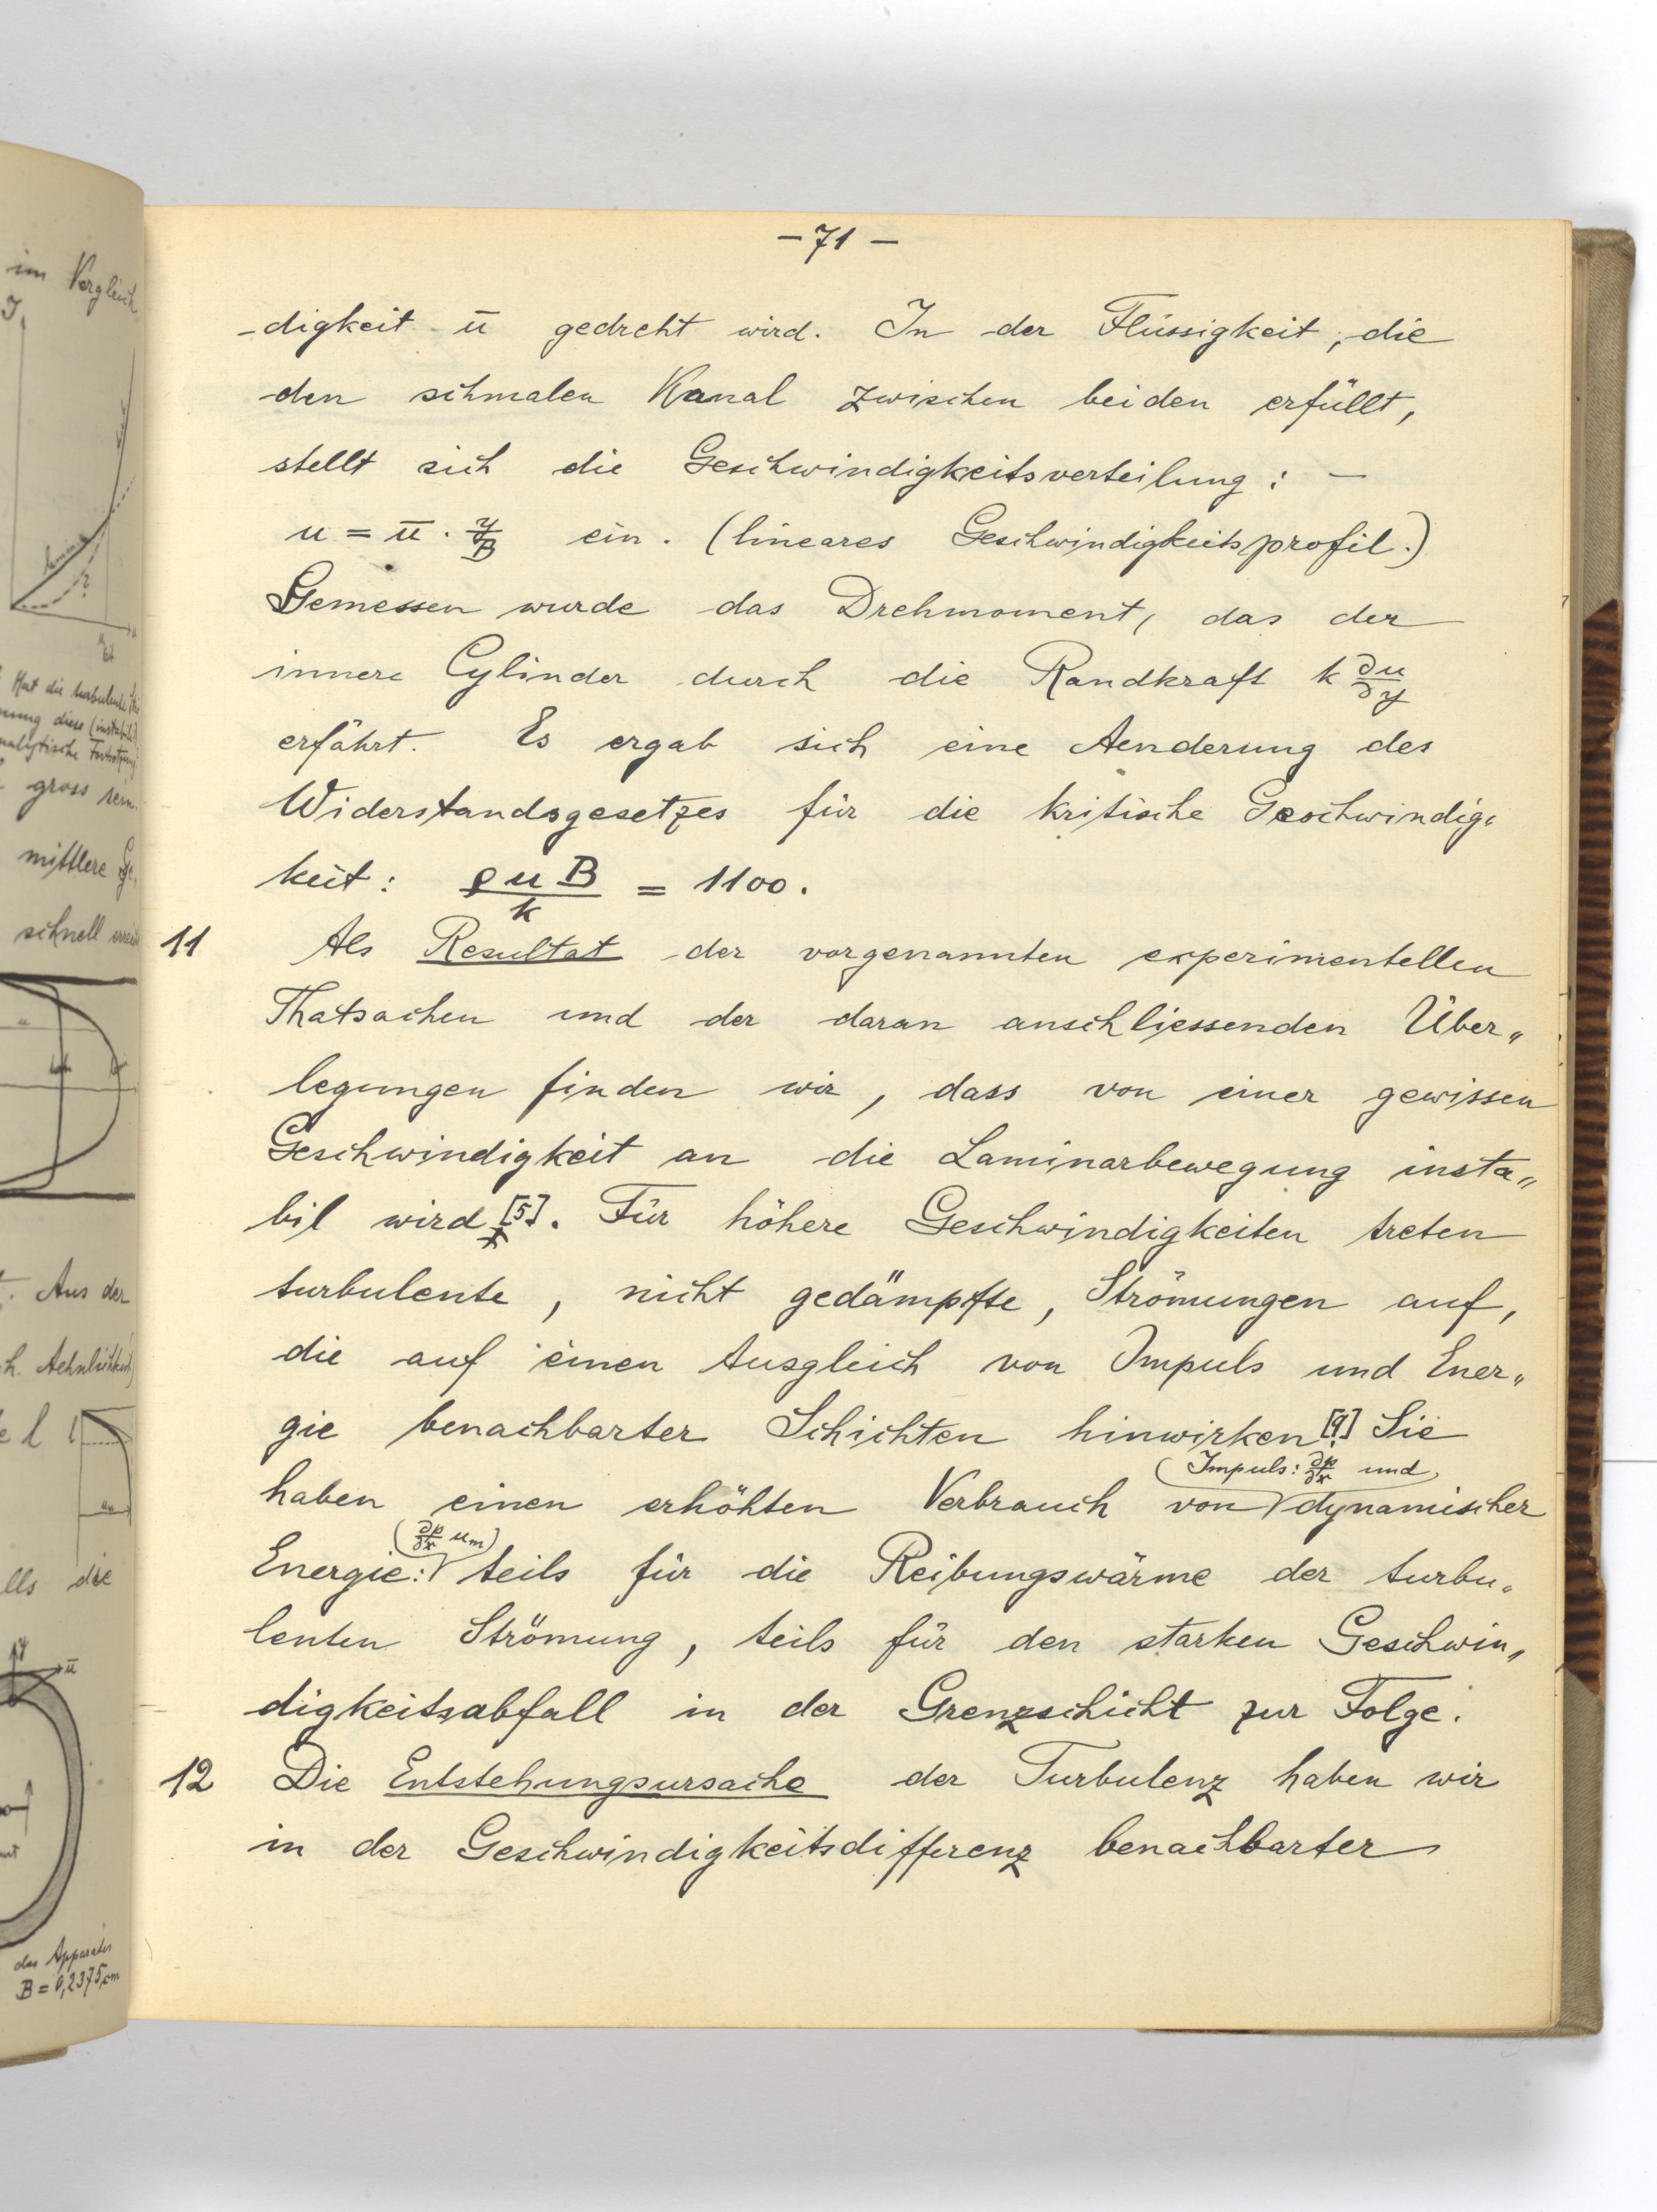 im Vergleich
J
lamin.
?
Hat die turbulente
gross sein.
mittlere Ge-
schnell
Aus der
h. Aehnlichkeit
l
lls die
y
ū
des Apparates
B = 0,2375 cm
– 71 –
-digkeit ū gedreht wird. In der Flüssigkeit, die
den schmalen Kanal zwischen beiden erfüllt,
stellt sich die Geschwindigkeitsverteilung: –
u = ū · y/B ein. (lineares Geschwindigkeitsprofil.)
Gemessen wurde das Drehmoment, das der
innere Cylinder durch die Randkraft k ∂u/∂y
erfährt. Es ergab sich eine Aenderung des
Widerstandsgesetzes für die kritische Geschwindig„
keit: ρuB/k = 1100.
11 Als Resultat der vorgenannten experimentellen
Thatsachen und der daran anschliessenden Über„
legungen finden wir, dass von einer gewissen
Geschwindigkeit an die Laminarbewegung insta„
bil wird [5]. Für höhere Geschwindigkeiten treten
turbulente, nicht gedämpfte, Strömungen auf,
die auf einen Ausgleich von Impuls und Ener„
gie benachbarter Schichten hinwirken [9]. Sie
(Impuls: ∂p/∂x und
haben einen erhöhten Verbrauch von dynamischer
(∂p/∂x u_m)
Energie: teils für die Reibungswärme der turbu„
lenten Strömung, teils für den starken Geschwin„
digkeitsabfall in der Grenzschicht zur Folge.
12 Die Entstehungsursache der Turbulenz haben wir
in der Geschwindigkeitsdifferenz benachbarter